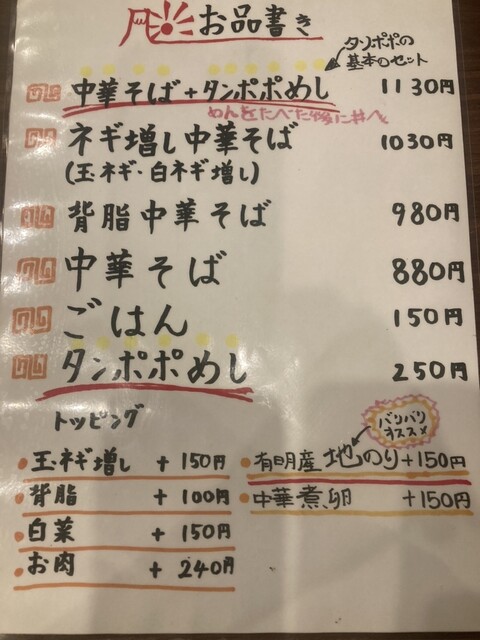 お品書き
タンポポの
基本のセット
中華そば+タンポポめし 1130円
めんをたべた後に丼へ
ネギ増し中華そば 1030円
(玉ネギ・白ネギ増し)
背脂中華そば 980円
中華そば 880円
ごはん 150円
タンポポめし 250円
トッピング
バリバリ
オススメ
・玉ネギ増し +150円
・背脂 +100円
・白菜 +150円
・お肉 +240円
・有明産地のり+150円
・中華煮卵 +150円